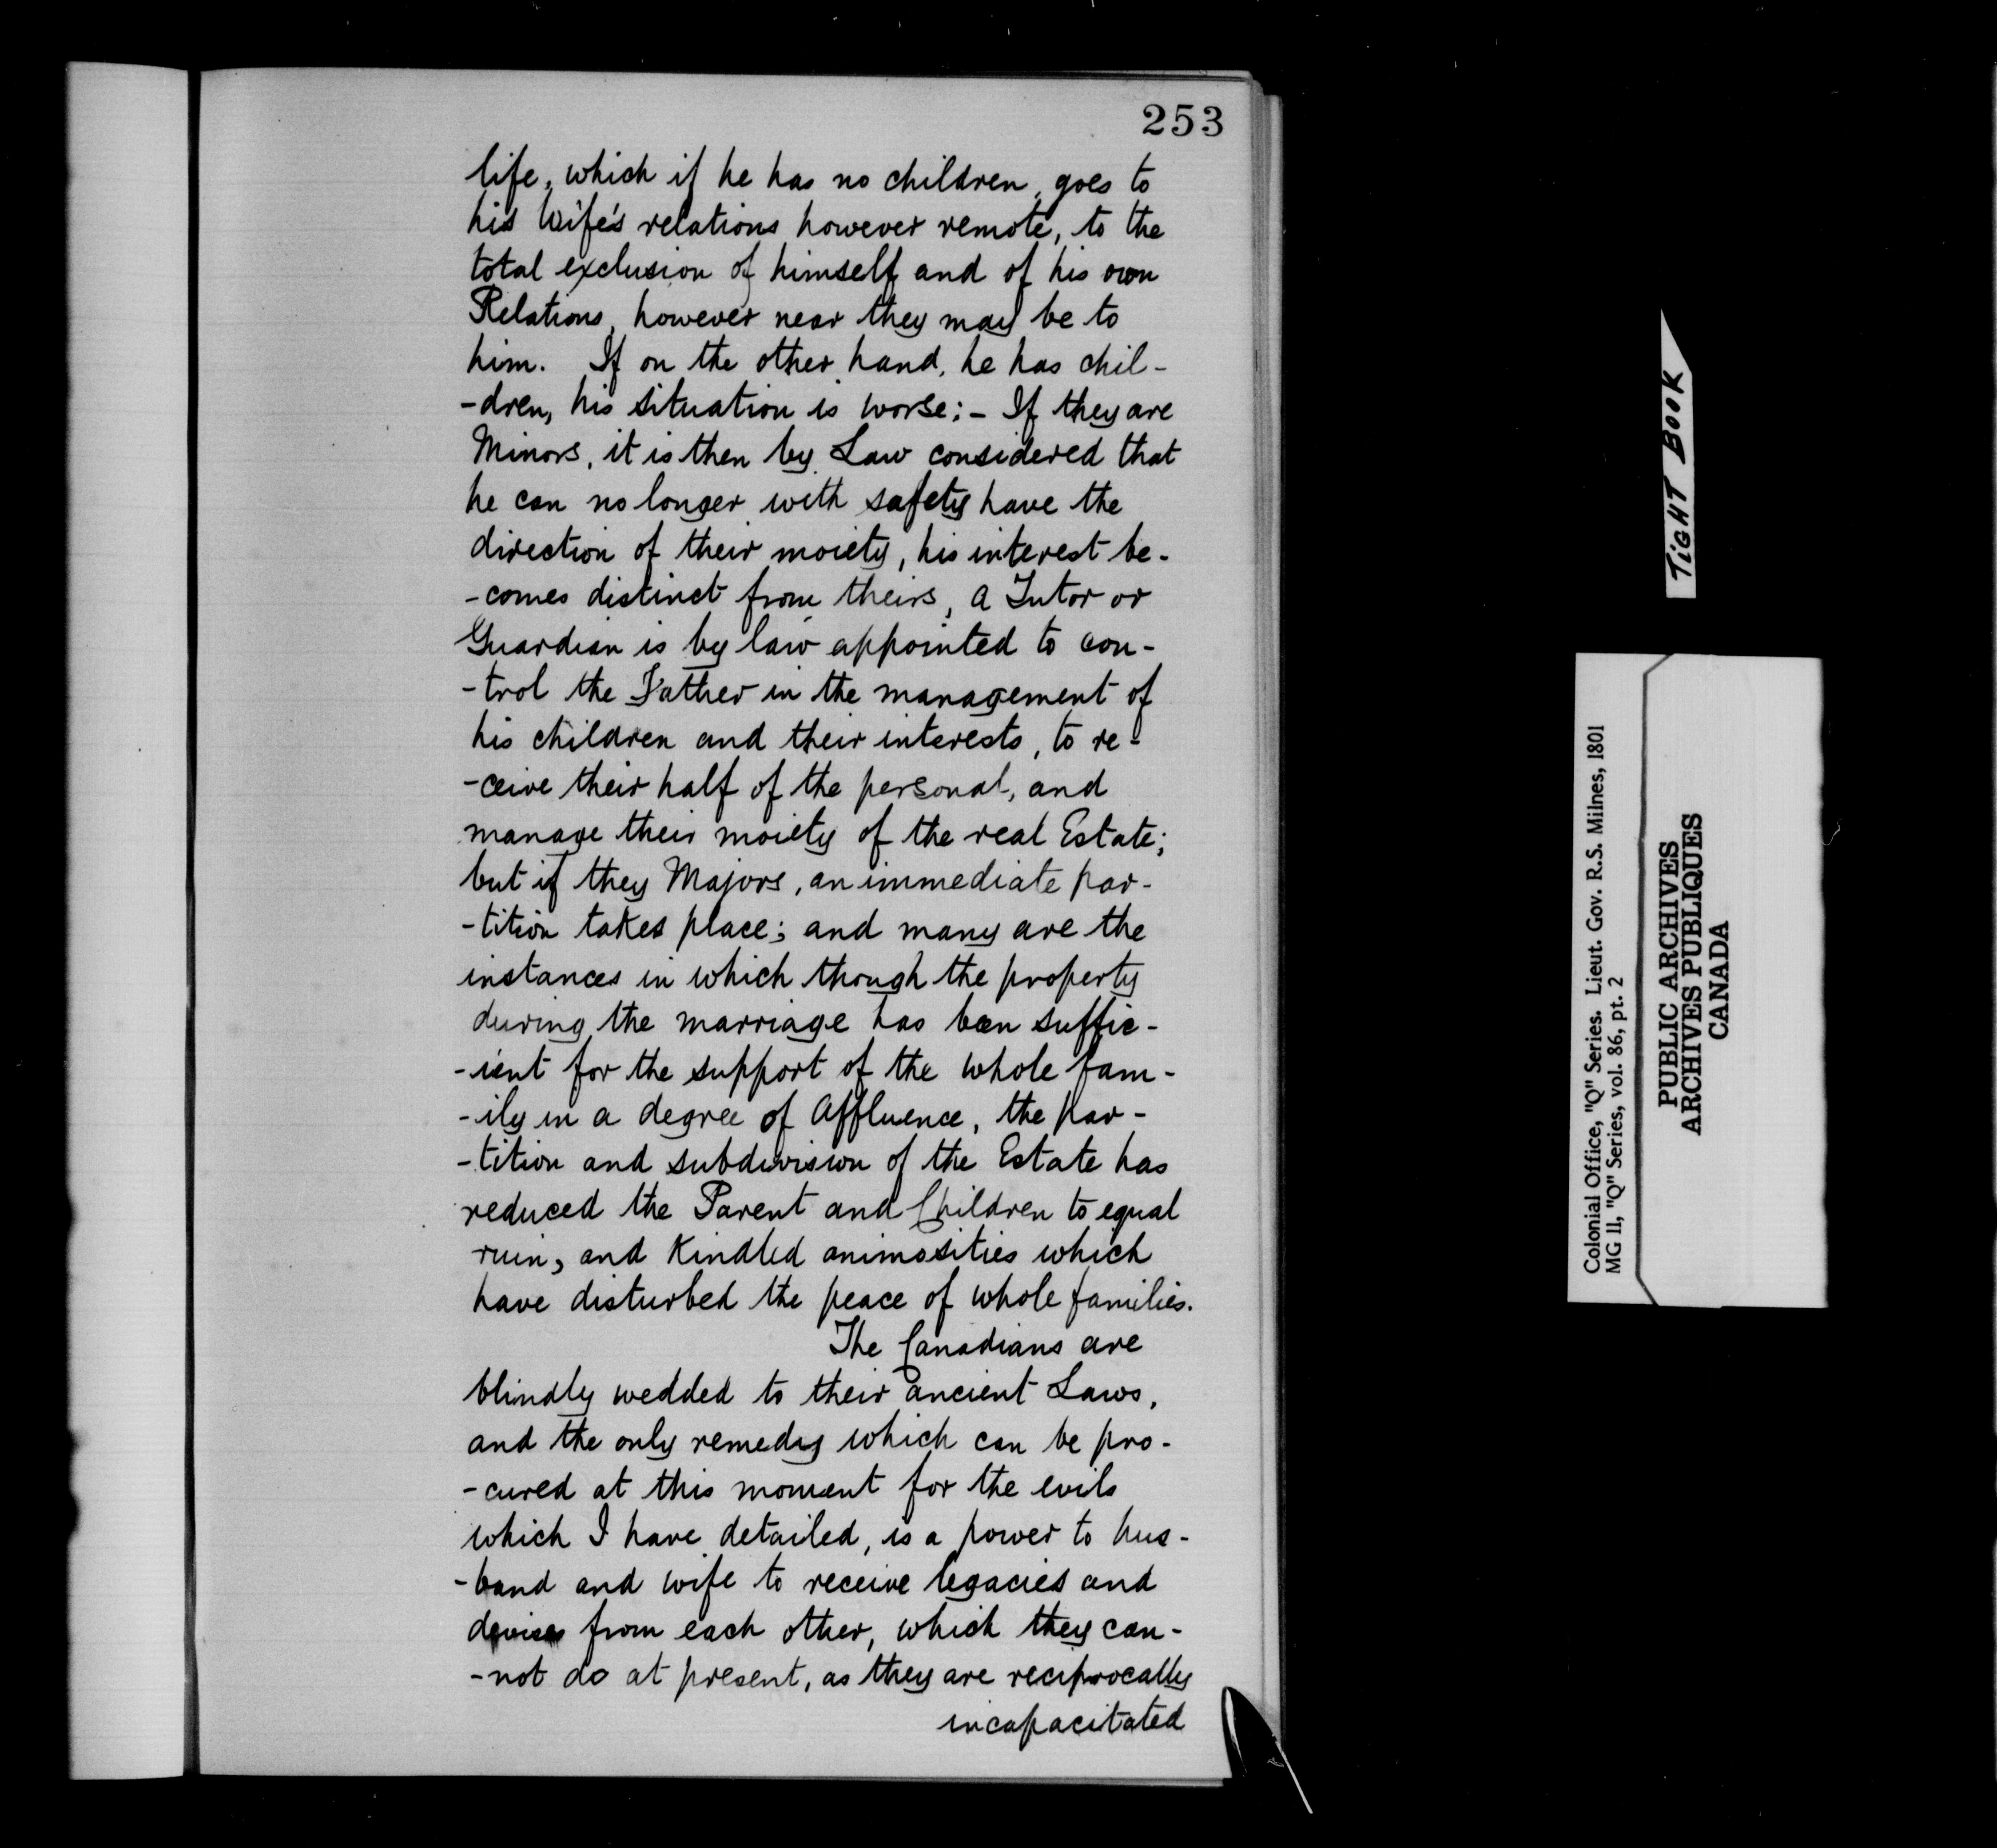 253
life, which if he has no children, goes to
his Wife's relations however remote, to the
total exclusion of himself and of his own
Relations, however near they may be to
him. If on the other hand, he has chil-
-dren, his situation is worse:- If they are
Minors, it is then by Law considered that
he can no longer with safety have the
direction of their moiety, his interest be-
-comes distinct from theirs, a Tutor or
Guardian is by law appointed to con-
-trol the Father in the management of
his children and their interests, to re-
-ceive their half of the personal, and
manage their moiety of the real Estate;
but if they Majors, an immediate par-
-tition takes place; and many are the
instances in which though the property
during the marriage has been suffic-
-ient for the support of the whole fam-
-ily in a degree of affluence, the par-
-tition and subdivision of the Estate has
reduced the Parent and Children to equal
ruin, and kindled animosities which
have disturbed the peace of whole families.
The Canadians are
blindly wedded to their ancient Laws,
and the only remedy which can be pro-
-cured at this moment for the evils
which I have detailed, is a power to hus-
-band and wife to receive legacies and
devises from each other, which they can-
-not do at present, as they are reciprocally
incapacitated
TIGHT BOOK
Colonial Office, "Q" Series. Lieut. Gov. R.S. Milnes, 1801
MG 11, "Q" Series, vol. 86, pt. 2
PUBLIC ARCHIVES
ARCHIVES PUBLIQUES
CANADA